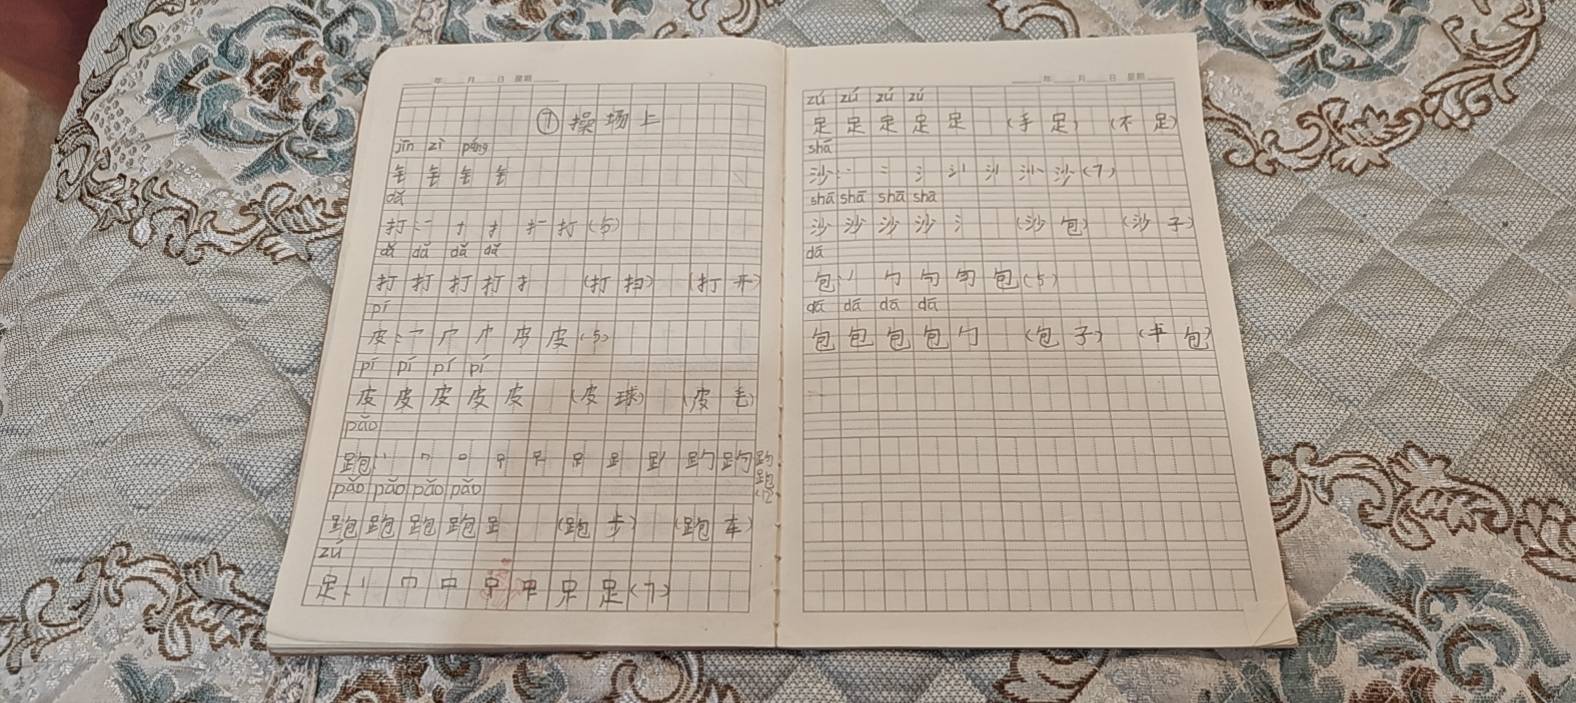 年 月 日 星期
⑦操场上
jīn zì páng
钅 钅 钅 钅
dǎ
打：一 十 扌 扌一 打（5）
dǎ dǎ dǎ dǎ
打 打 打 打 扌 （打扫） （打开）
pí
皮：乛 厂 皮 皮（5）
pí pí pí pí
皮 皮 皮 皮 皮 （皮球） （皮毛）
pǎo
跑：丨 口
跑（12
pǎo pǎo pǎo pǎo
跑 跑 跑 跑 （跑步） （跑车）
zú
足：丨 口 足（7）
年 月 日 星期
zú zú zú zú
足 足 足 足 足 （手足） （不足）
shā
沙：丶 冫 氵 沙（7）
shā shā shā shā
沙 沙 沙 沙 氵 （沙包） （沙子）
dā
包：丿 勹 包（5）
dā dā dā dā
包 包 包 包 勹 （包子） （书包）